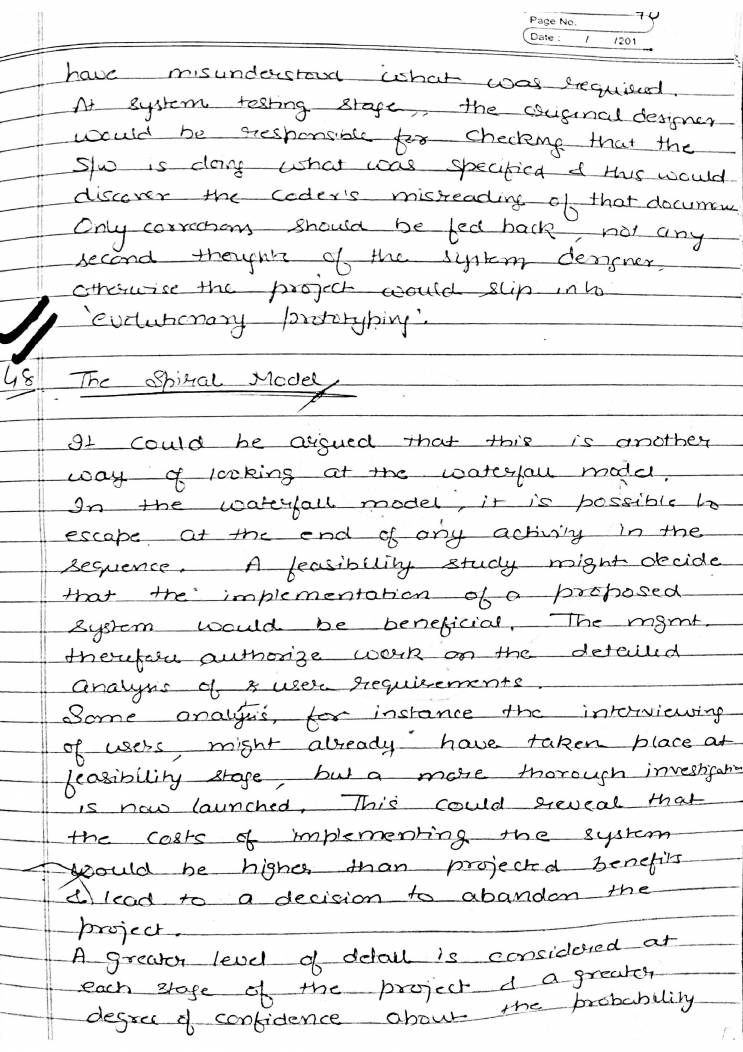 Page No. 70
Date : / /201
have misunderstood what was required.
At system testing stage, the original designer
would be responsible for checking that the
S/w is doing what was specified & this would
discover the coder's misreading of that document
Only corrections should be fed back, not any
second thoughts of the system designer,
otherwise the project would slip into
'evolutionary prototyping'.
48 The Spiral Model
It could be argued that this is another
way of looking at the waterfall model.
In the waterfall model, it is possible to
escape at the end of any activity in the
sequence. A feasibility study might decide
that the implementation of a proposed
system would be beneficial. The mgmt.
therefore authorize work on the detailed
analysis of user requirements.
Some analysis, for instance the interviewing
of users, might already have taken place at
feasibility stage, but a more thorough investigation
is now launched. This could reveal that
the costs of implementing the system
would be higher than projected benefits
& lead to a decision to abandon the
project.
A greater level of detail is considered at
each stage of the project & a greater
degree of confidence about the probability